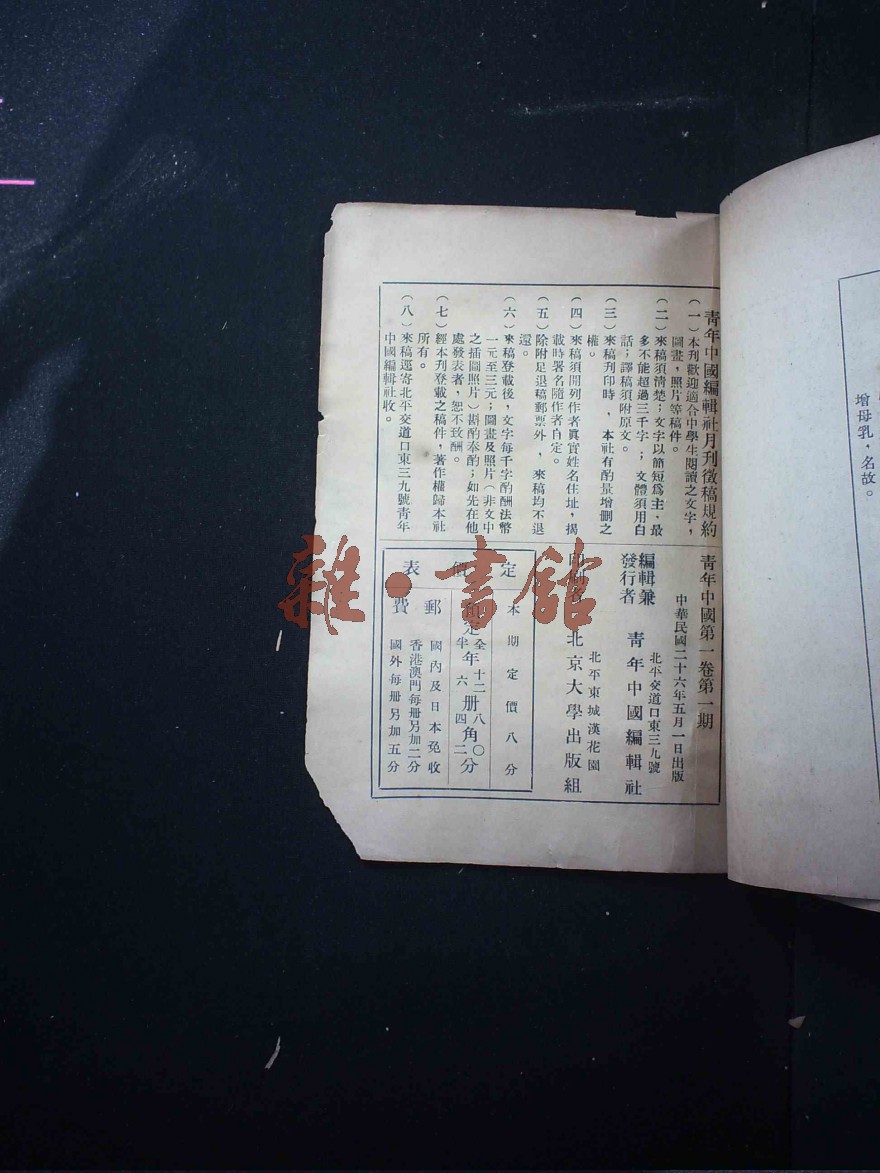 青年中國編輯社月刊徵稿規約
（一）本刊歡迎適合中學生閱讀之文字，
圖畫，照片等稿件。
（二）來稿須清楚；文字以簡短爲主，最
多不能超過三千字；文體須用白
話；譯稿須附原文。
（三）來稿刊印時，本社有酌量增刪之
權。
（四）來稿須開列作者眞實姓名住址，揭
載時署名隨作者自定。
（五）除附足退稿郵票外，來稿均不退
還。
（六）來稿登載後，文字每千字酌酬法幣
一元至三元；圖畫及照片（非文中
之插圖照片）斟酌奉酬；如先在他
處發表者，恕不致酬。
（七）經本刊登載之稿件，著作權歸本社
所有。
（八）來稿逕寄北平交道口東三九號靑年
中國編輯社收。
靑年中國第一卷第一期
中華民國二十六年五月一日出版
北平交道口東三九號
編輯兼
發行者 靑年中國編輯社
北平東城漢花園
印刷者 北京大學出版組
定價表
本期定價八分
預定 全年十二册八角〇分
半年六册四角二分
郵費
國內及日本免收
香港澳門每册另加二分
國外每册另加五分
增母乳，名故。
雜·書館